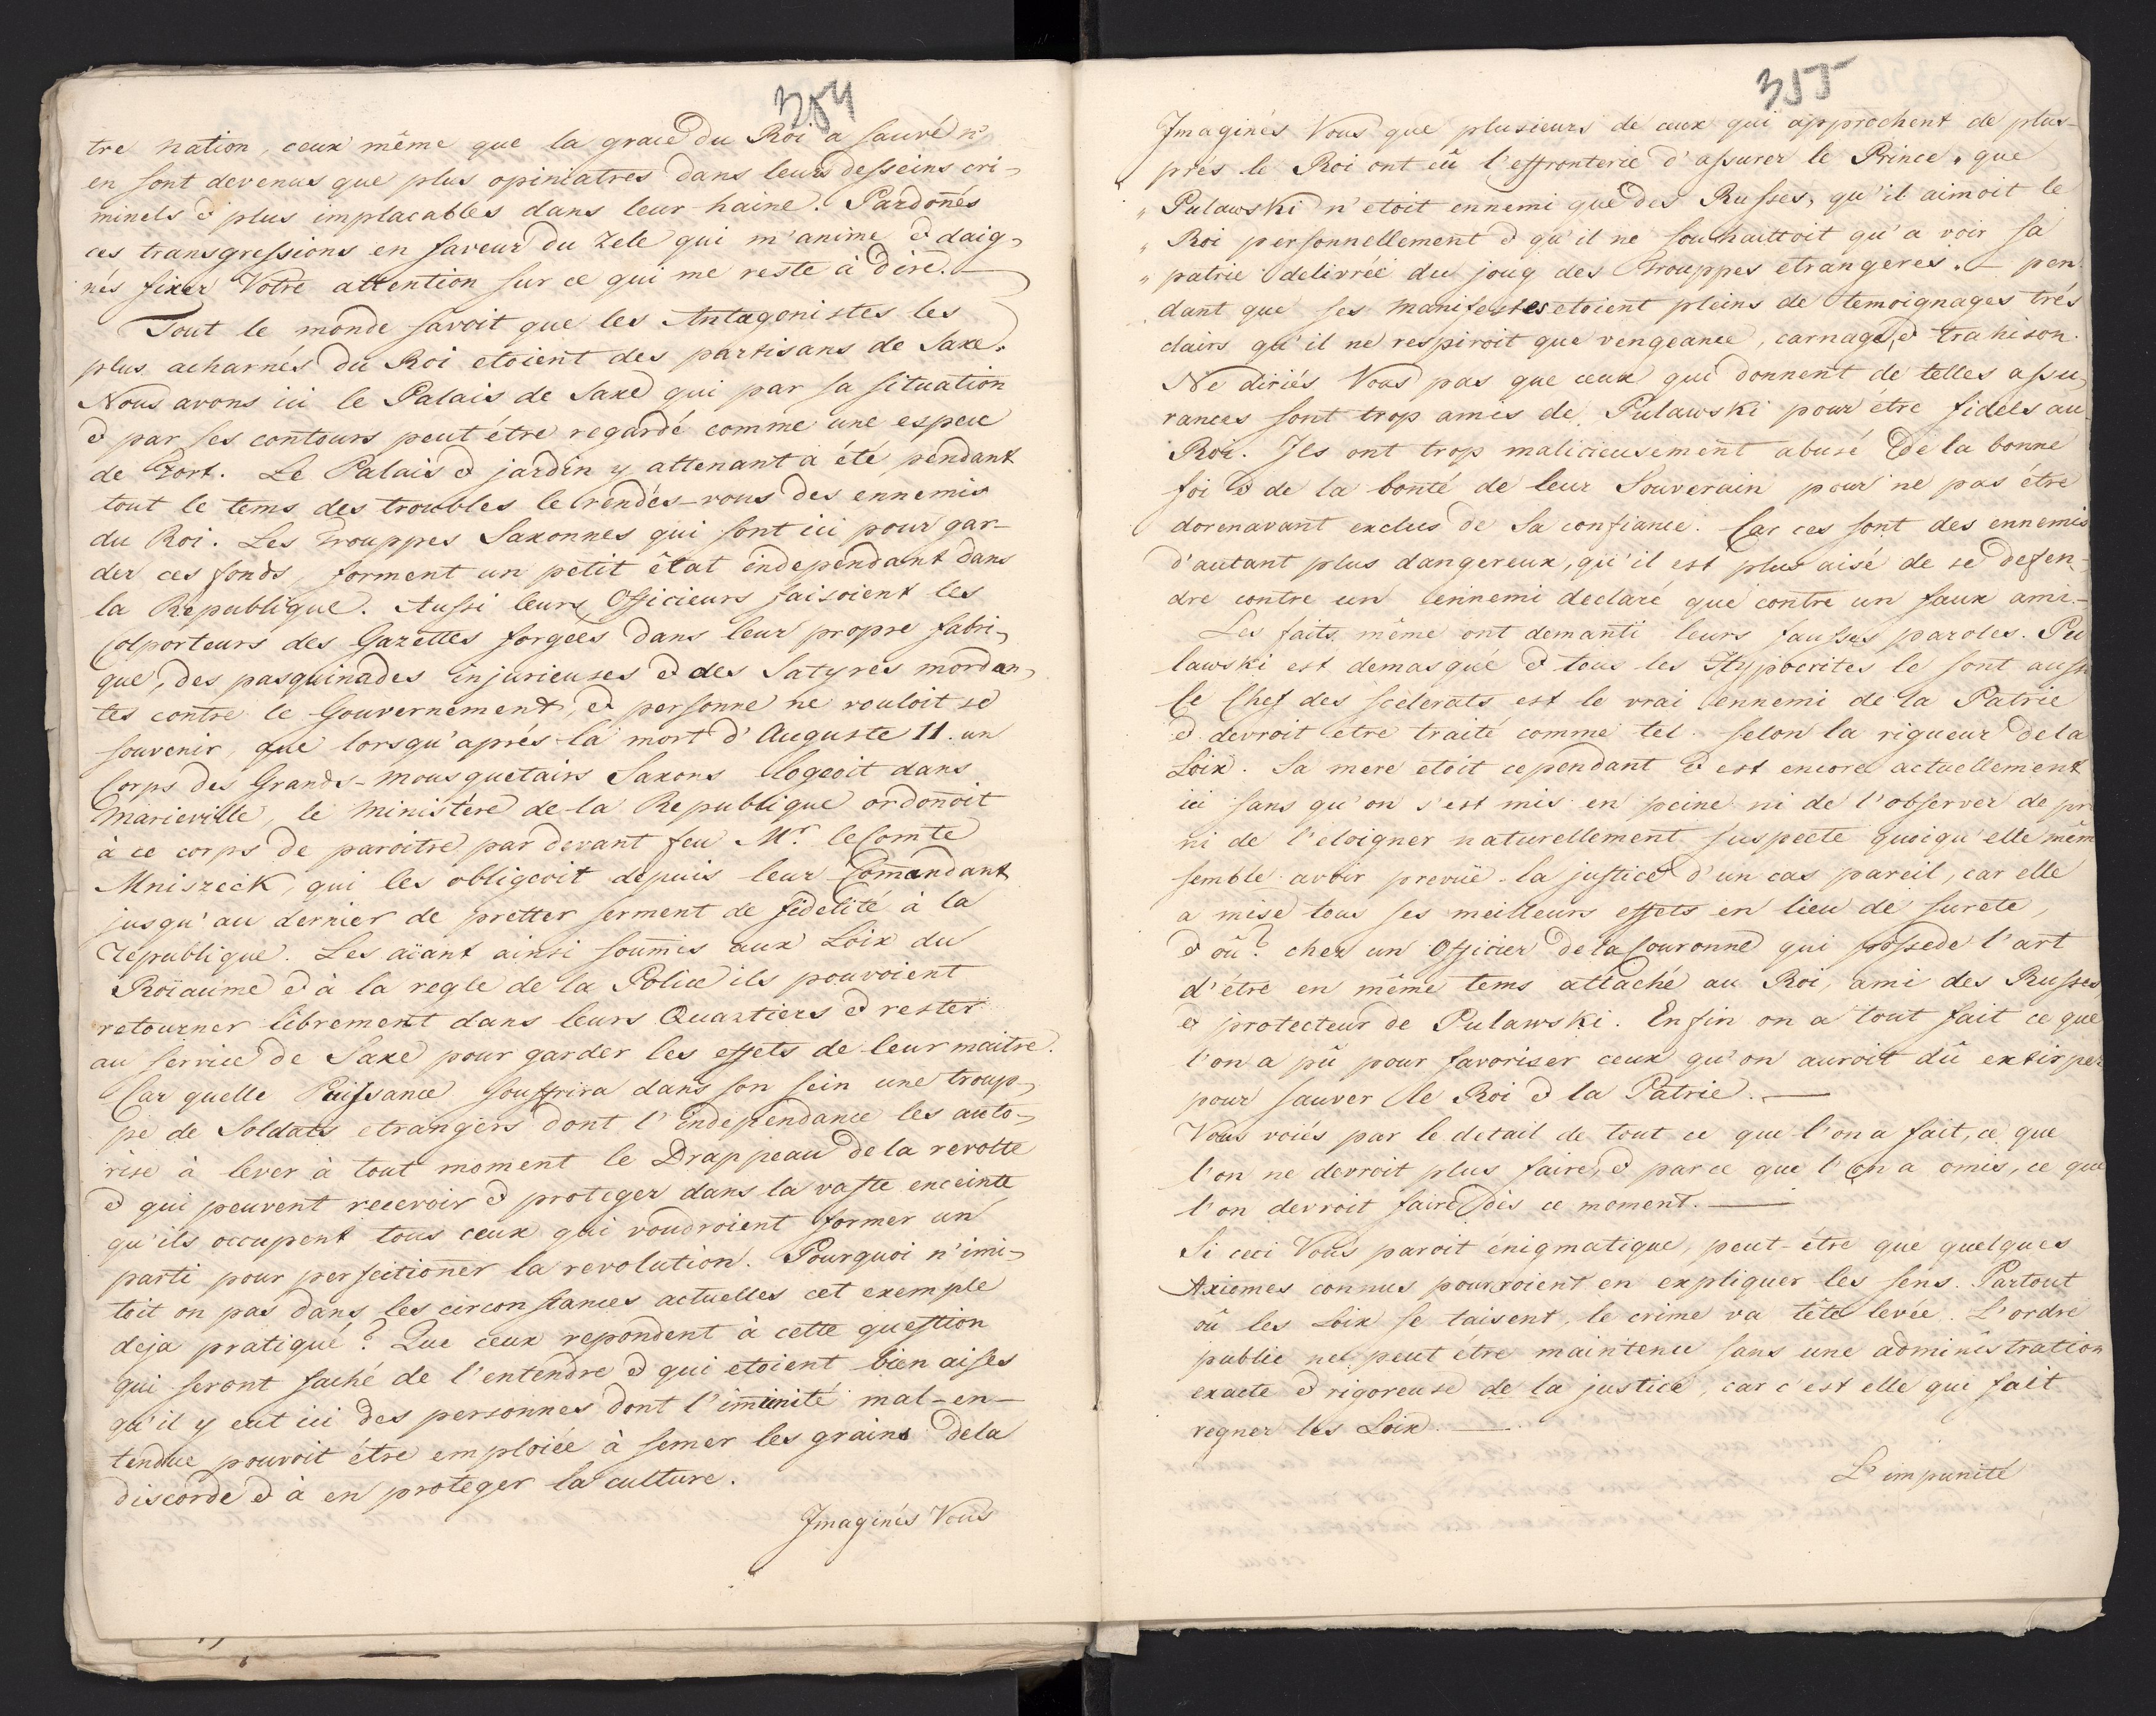 354
tre nation, ceux même que la grace du Roi a sauvé n'
en sont devenus que plus opiniatres dans leurs desseins cri-
minels & plus implacables dans leur haine. Pardonés
ces transgressions en faveur du Zele qui m'anime & daig-
nés fixer Votre attention sur ce qui me reste à dire. —
Tout le monde savoit que les Antagonistes les
plus acharnés du Roi etoient des partisans de Saxe.
Nous avons ici le Palais de Saxe qui par sa situation
& par ses contours peut étre regardé comme une espece
de Fort. Le Palais & jardin y attenant a été pendant
tout le tems des troubles le rendés-vous des ennemis
du Roi. Les Trouppes Saxonnes qui sont ici pour gar-
der ces fonds, forment un petit êtat independant dans
la Republique. Aussi leurs Officieurs faisoient les
Colporteurs des Gazettes forgées dans leur propre fabri-
que, des pasquinades injurieuses & des Satyres mordan-
tes contre le Gouvernement, & personne ne vouloit se
souvenir, que lorsqu'aprés la mort d'Auguste II. un
Corps des Grands-Mousquetairs Saxons logeoit dans
Marieville, le Ministére de la Republique ordonoit
à ce corps de paroitre par devant feu Mr. le Comte
Mniszeck, qui les obligeoit depuis leur Comandant
jusqu'au dernier de pretter serment de fidelité à la
republique. Les aïant ainsi soumis aux Loix du
Roïaume & à la regle de la Police ils pouvoient
retourner librement dans leurs Quartiers & rester
au service de Saxe pour garder les effets de leur maitre.
Car quelle Puissance souffrira dans son sein une troup-
pe de Soldats etrangers dont l'Independance les auto-
rise à lever à tout moment le Drappeau de la revolte
& qui peuvent recevoir & proteger dans la vaste enceinte
qu'ils occupent tous ceux qui voudroient former un
parti pour perfectioner la revolution. Pourquoi n'imi-
toit on pas dans les circonstances actuelles cet exemple
deja pratiqué? Que ceux repondent à cette question
qui seront faché de l'entendre & qui etoient bien aises
qu'il y eut ici des personnes dont l'imunité mal-en-
tendue pouvoit étre emploiée à semer les grains de la
discorde & à en proteger la culture.
Imaginés Vous
355
Imaginés Vous que plusieurs de ceux qui approchent de plus-
prés le Roi ont eû l'effronterie d'assurer le Prince, que
„ Pulawski n'etoit ennemi que des Russes, qu'il aimoit le
„ Roi personnellement & qu'il ne souhaittoit qu'a voir sa
„ patrie delivrée du joug des Trouppes etrangeres. — pen
dant que ses Manifestes etoient pleins de temoignages trés
clairs qu'il ne respiroit que vengeance, carnage, & trahison.
Ne diriés Vous pas que ceux qui donnent de telles assu-
rances sont trop amis de Pulawski pour étre fidels au
Roi. Ils ont trop malicieusement abusé de la bonne
foi & de la bonté de leur Souverain pour ne pas étre
dorenavant exclus de Sa confiance. Car ces sont des ennemis
d'autant plus dangereux, qu'il est plus aisé de se defen-
dre contre un ennemi declaré que contre un faux ami.
Les faits même ont demanti leurs fausses paroles. Pu
lawski est demasqué & tous les Hypocrites le sont aussi
Ce Chef des scelerats est le vrai ennemi de la Patrie
& devroit etre traité comme tel selon la rigueur de la
Loix. Sa mere etoit cependant & est encore actuellement
ici sans qu'on s'est mis en peine ni de l'observer de pr
ni de l'eloigner naturellement suspecte quoiqu'elle mêm
semble avoir prevüe la justice d'un cas pareil, car elle
a mise tous ses meilleurs effets en lieu de sureté,
& oû? chez un Officier de la Couronne qui possede l'art
d'étre en même tems attaché au Roi, ami des Russes
& protecteur de Pulawski. Enfin on a tout fait ce que
l'on a pû pour favoriser ceux qu'on auroit dû extirper
pour sauver le Roi & la Patrie. —
Vous voiés par le detail de tout ce que l'on a fait, ce que
l'on ne devroit plus faire, & par ce que l'on a omis, ce que
l'on devroit faire dès ce moment. —
Si ceci Vous paroit énigmatique, peut-étre que quelques
Axiomes connus pourroient en expliquer les sens. Partout
oû les Loix se taisent, le crime va tête levée. L'ordre
public ne peut étre maintenu sans une administration
exacte & rigoreuse de la justice, car c'est elle qui fait
regner les Loix. —
L'impunité